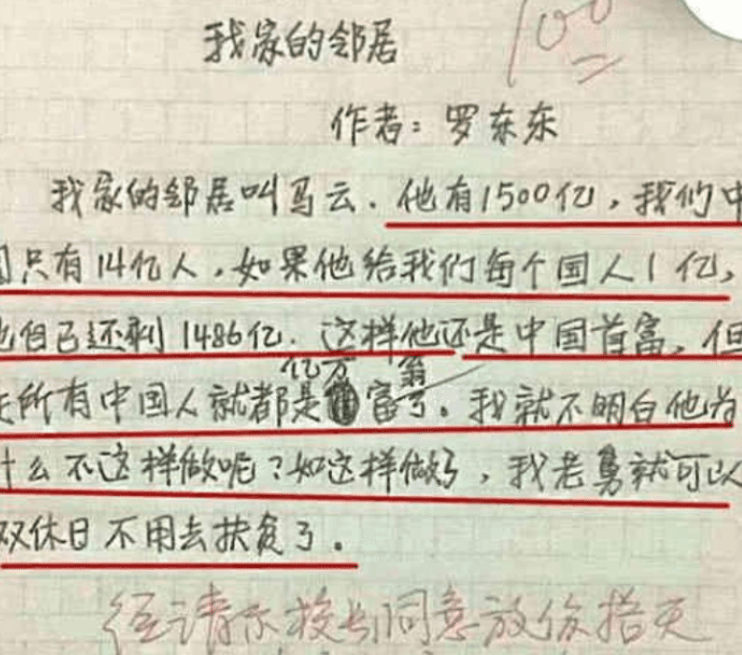 我家的邻居
100
作者：罗东东
我家的邻居叫马云.他有1500亿，我们中
国只有14亿人，如果他给我们每个国人1亿，
他自己还剩1486亿.这样他还是中国首富，但
亿万 翁
是所有中国人就都是富了。我就不明白他为
什么不这样做呢？如这样做好，我老舅就可以
双休日不用去扶贫了。
经请示校长同意放假拾天